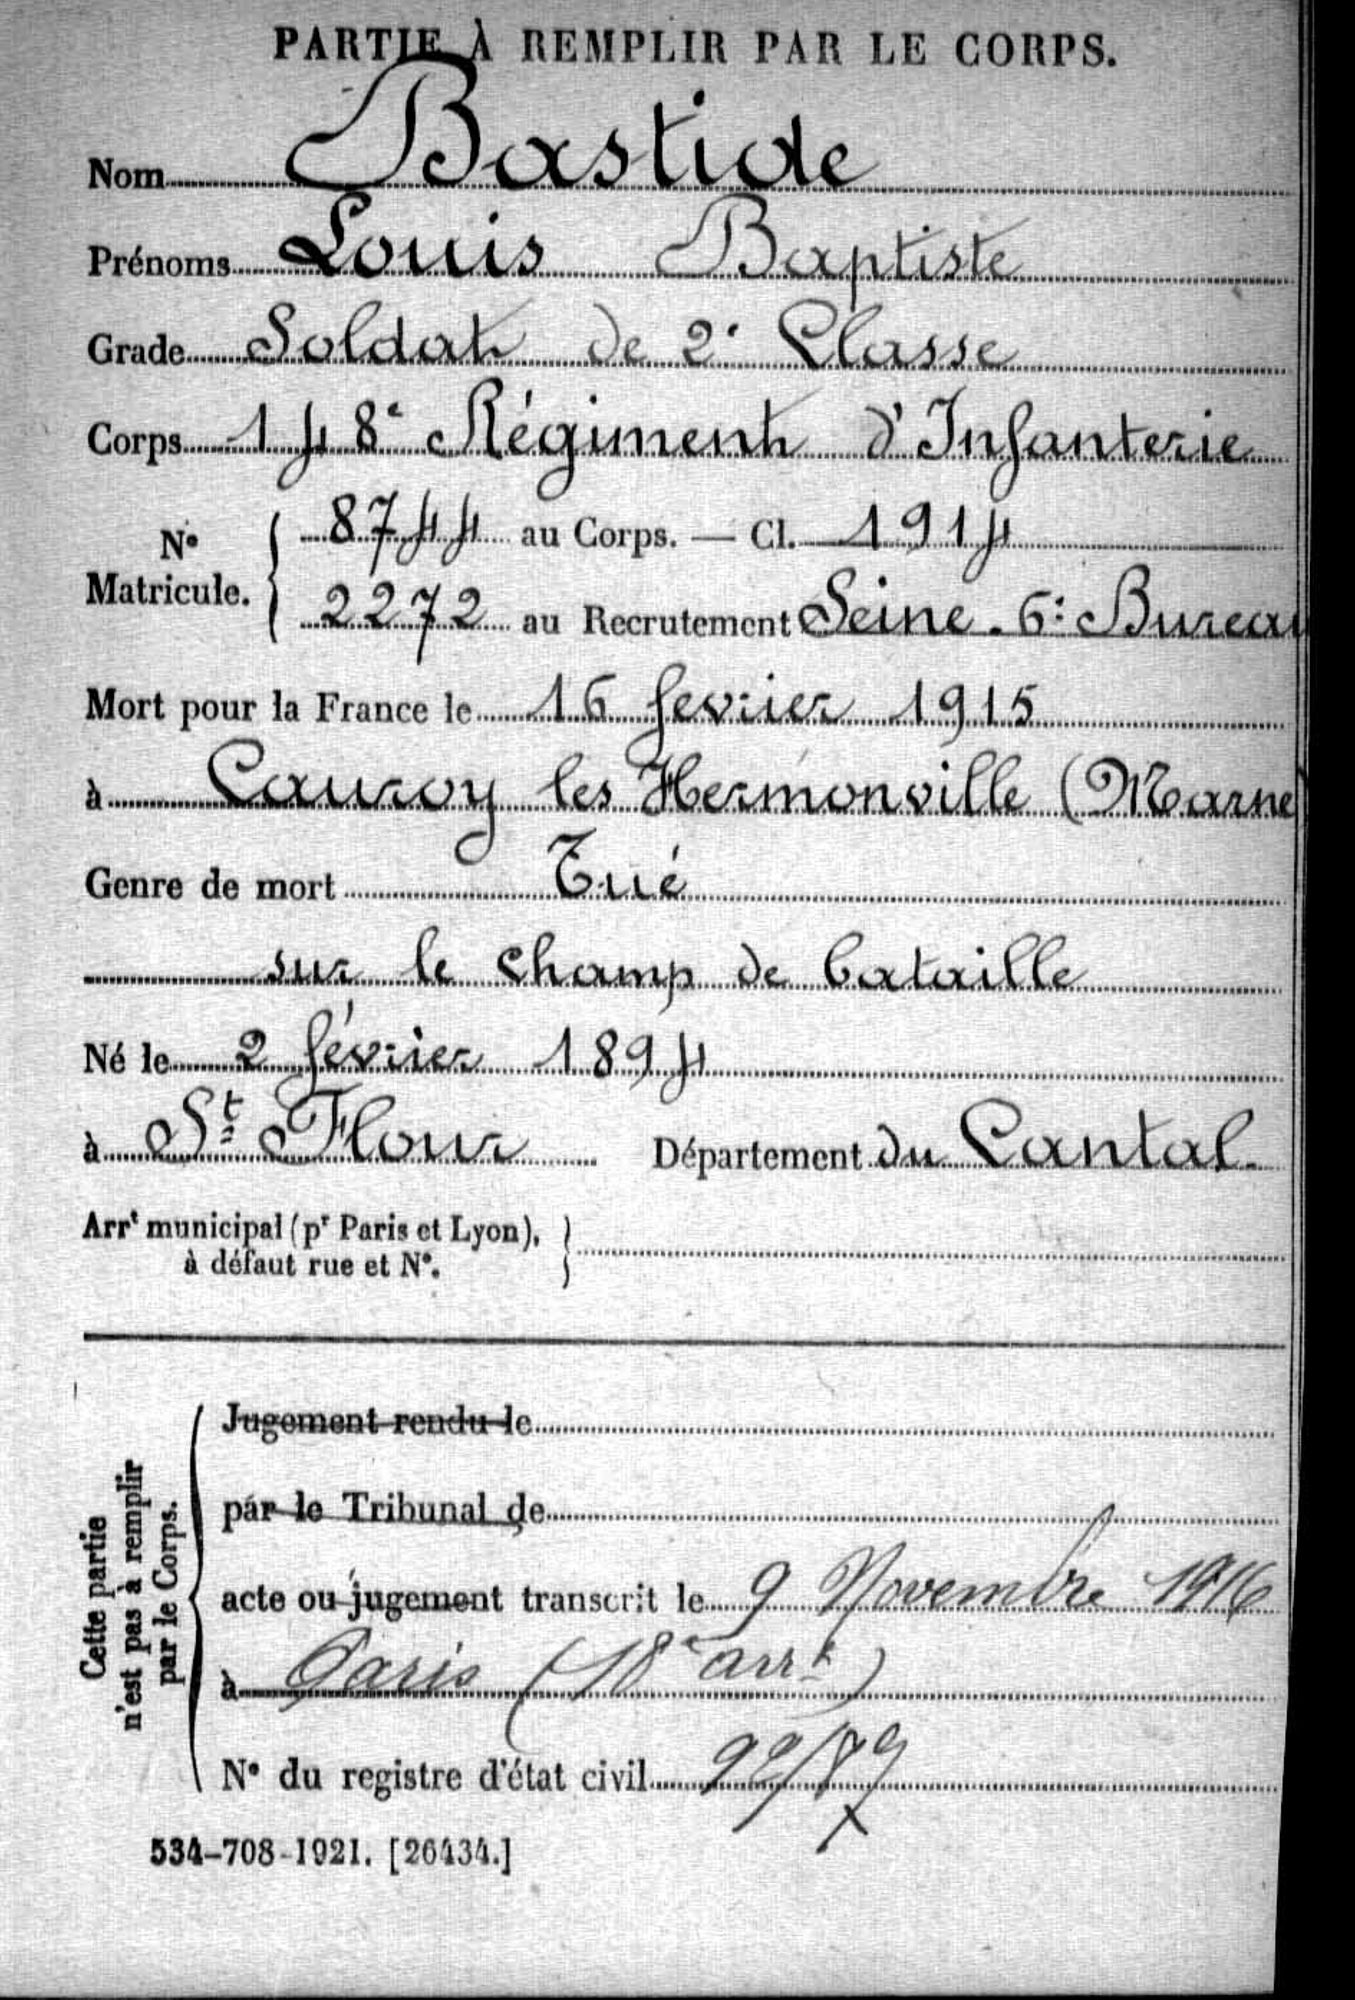 PARTIE À REMPLIR PAR LE CORPS.
Nom Bastide
Prénoms Louis Baptiste
Grade Soldat de 2e Classe
Corps 148e Régiment d'Infanterie
No Matricule. { 8744 au Corps. — Cl. 1914
2272 au Recrutement Seine. 6e Bureau
Mort pour la France le 16 fevrier 1915
à Cauroy les Hermonville (Marne)
Genre de mort Tué
sur le champ de bataille
Né le 2 février 1894
à St Flour Département du Cantal.
Arrt municipal (pr Paris et Lyon), }
à défaut rue et No.
Cette partie
n'est pas à remplir
par le Corps.
Jugement rendu le
par le Tribunal de
acte ou jugement transcrit le 9 Novembre 1916
à Paris (18e arrt)
No du registre d'état civil 92/89
534-708-1921. [26434.]